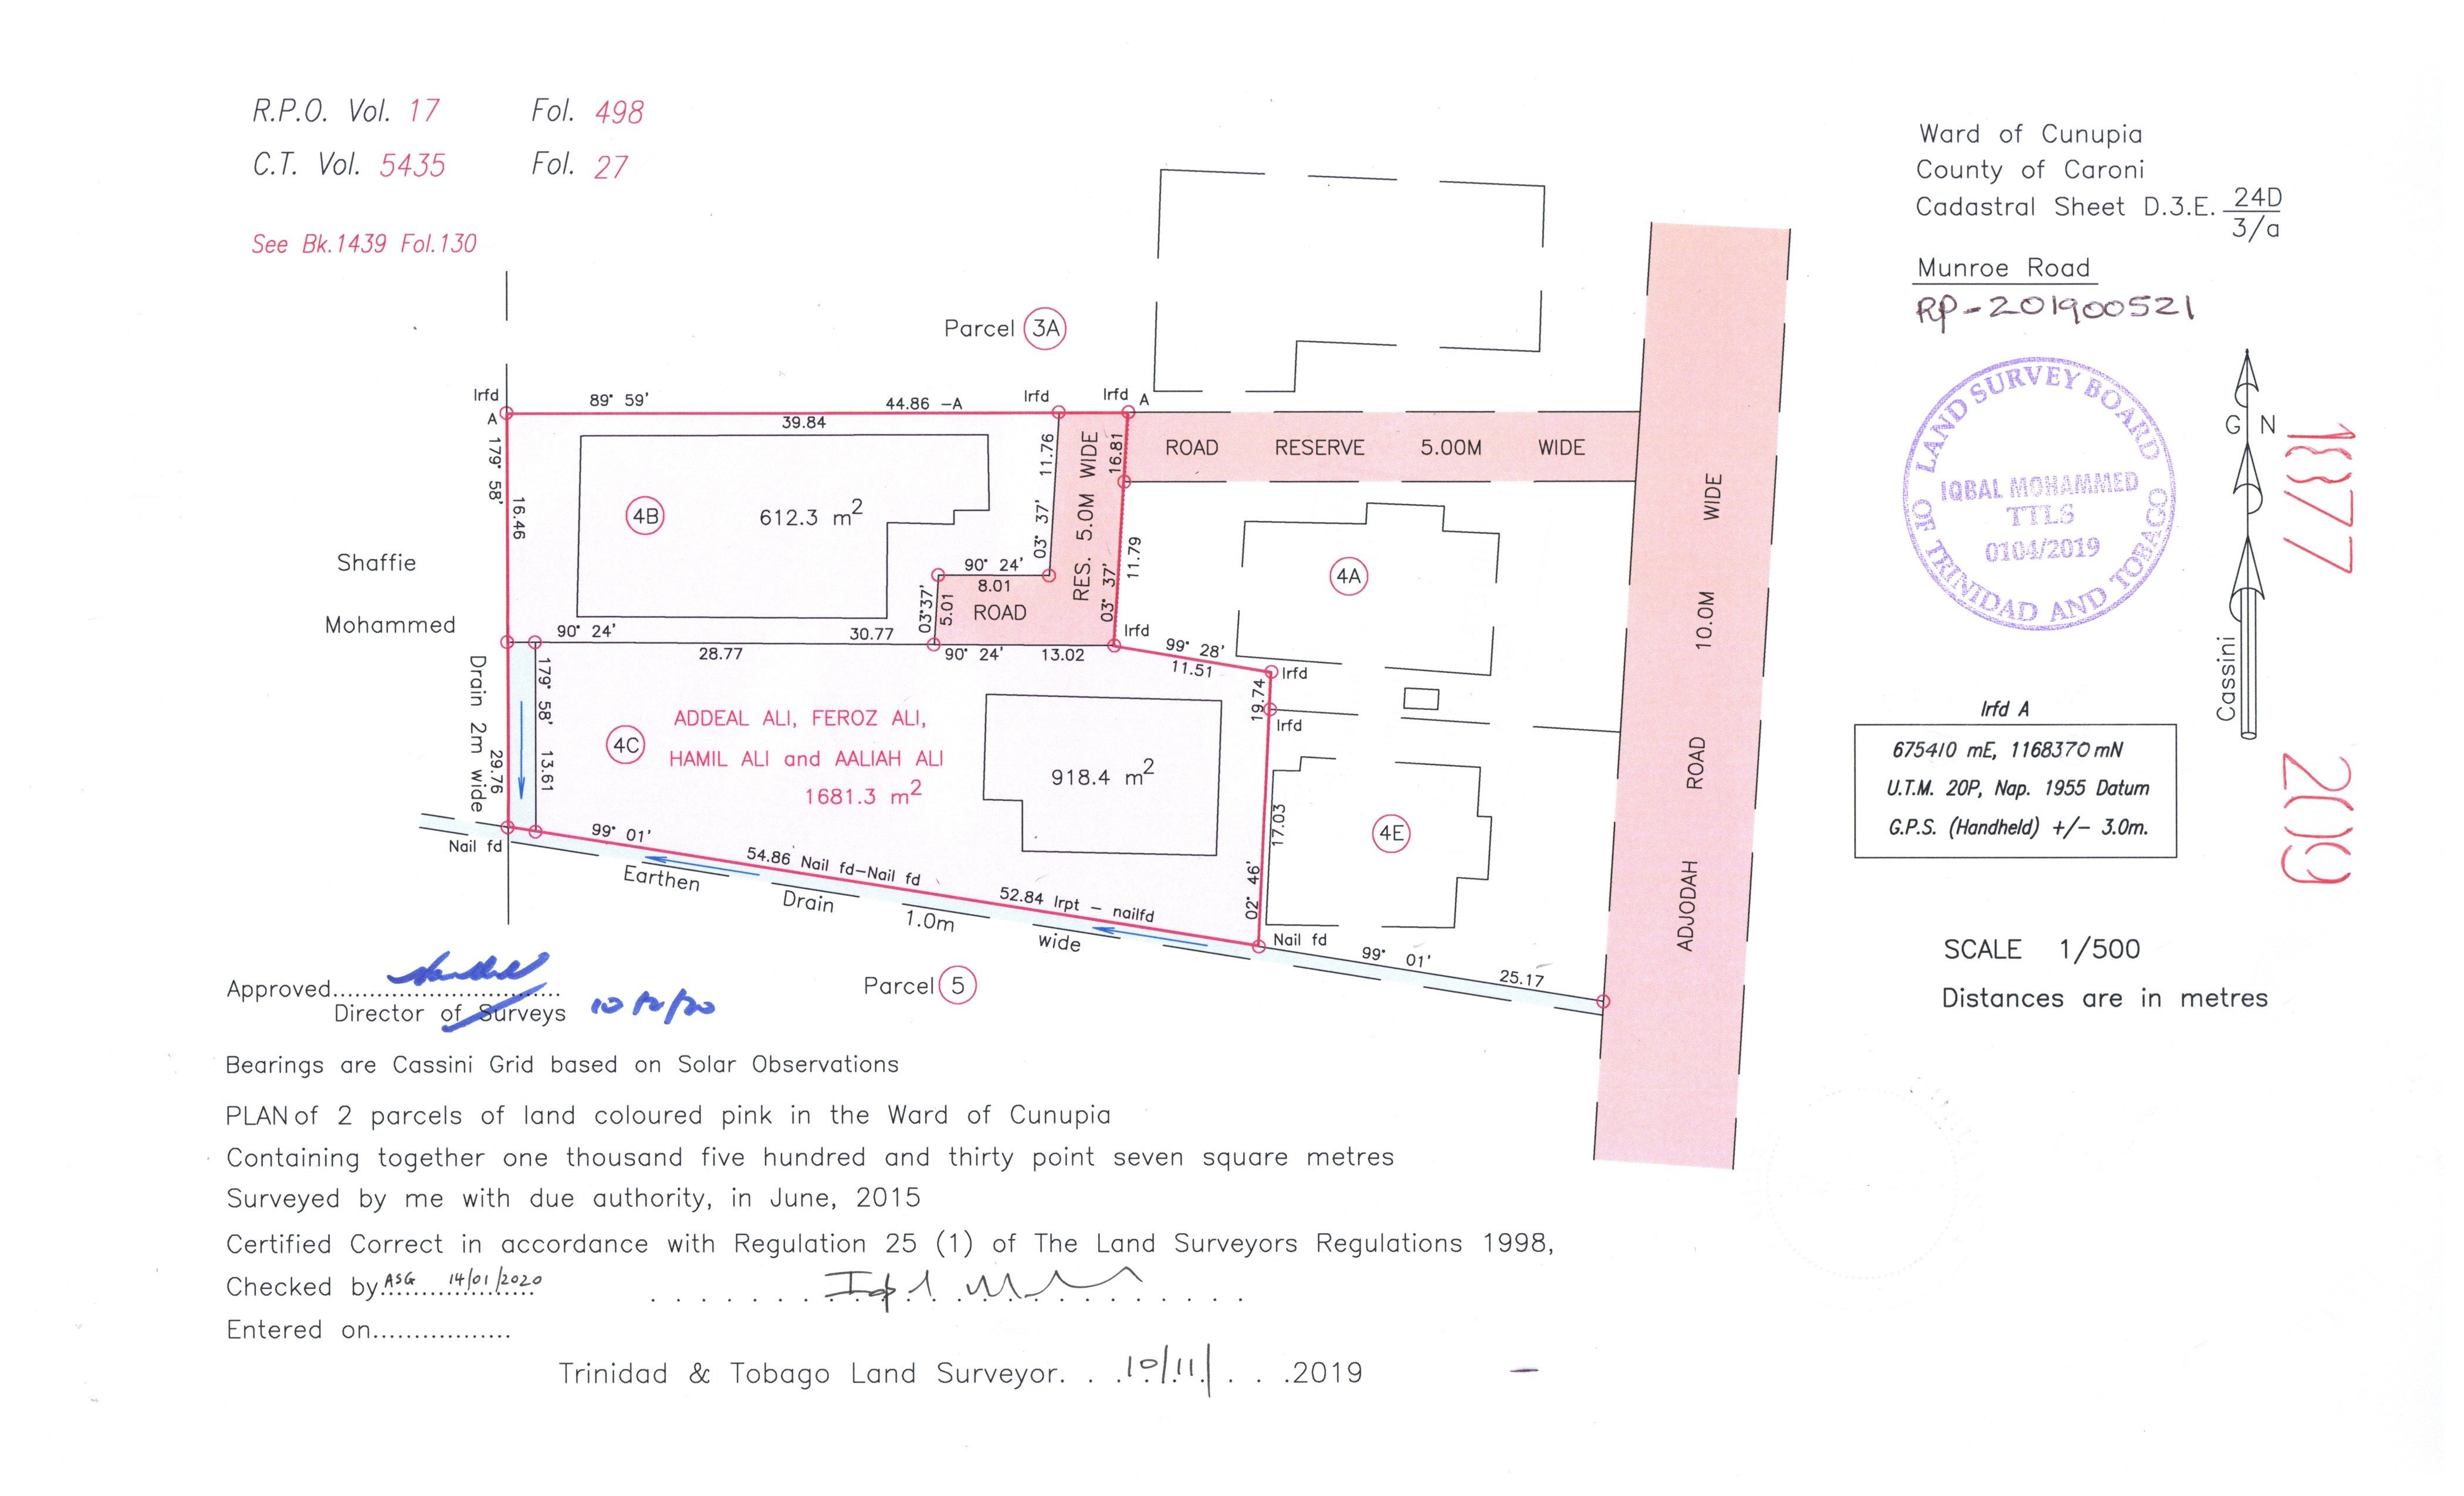 R.P.O. Vol. 17 Fol. 498
C.T. Vol. 5435 Fol. 27
See Bk.1439 Fol.130
Ward of Cunupia
County of Caroni
Cadastral Sheet D.3.E. 24D
3/a
Munroe Road
RP-201900521
LAND SURVEY BOARD
OF TRINIDAD AND TOBAGO
IQBAL MOHAMMED
TTLS
0104/2019
G N
Cassini
1877
2019
Irfd A
675410 mE, 1168370 mN
U.T.M. 20P, Nap. 1955 Datum
G.P.S. (Handheld) +/- 3.0m.
SCALE 1/500
Distances are in metres
Parcel 3A
Irfd
A
89° 59'
44.86 -A
Irfd
Irfd A
39.84
179° 58'
16.46
4B
612.3 m2
11.76
03° 37'
RES. 5.0M WIDE
16.81
ROAD RESERVE 5.00M WIDE
11.79
03° 37'
90° 24'
8.01
ROAD
03°37'
5.01
4A
Shaffie
Mohammed
90° 24'
30.77
28.77
90° 24' 13.02
Irfd
99° 28'
11.51
Irfd
19.74
Irfd
Drain 2m wide
29.76
179° 58'
13.61
4C
ADDEAL ALI, FEROZ ALI,
HAMIL ALI and AALIAH ALI
1681.3 m2
918.4 m2
17.03
02° 46'
4E
Nail fd
99° 01'
54.86 Nail fd-Nail fd
52.84 Irpt - nailfd
Earthen Drain 1.0m wide
Nail fd
99° 01'
25.17
ADJODAH ROAD 10.0M WIDE
Parcel 5
Approved
Director of Surveys 10/2/20
Bearings are Cassini Grid based on Solar Observations
PLAN of 2 parcels of land coloured pink in the Ward of Cunupia
Containing together one thousand five hundred and thirty point seven square metres
Surveyed by me with due authority, in June, 2015
Certified Correct in accordance with Regulation 25 (1) of The Land Surveyors Regulations 1998,
Checked by ASG 14/01/2020
Entered on
Trinidad & Tobago Land Surveyor. . . 10/11/ . . .2019